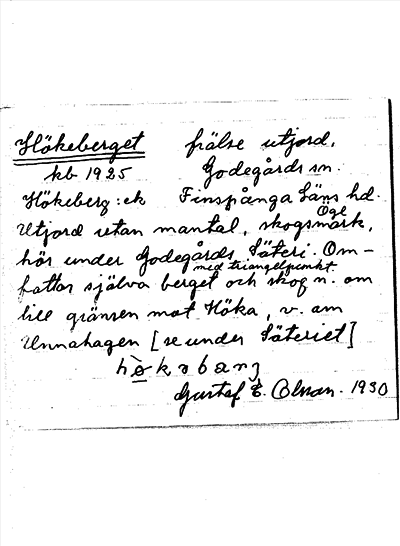 Hökeberget frälse utjord.
kb 1925 Godegårds sn.
Hökeberg: ek Finspånga Läns hd.
Ögl
Utjord utan mantal, skogsmark,
hör under Godegårds Säteri. Om-
med triangelpunkt
fattar själva berget och skog n. om
till gränsen mot Höka, v. om
Unnahagen [se under Säteriet]
Gustaf E. Olsson. 1930